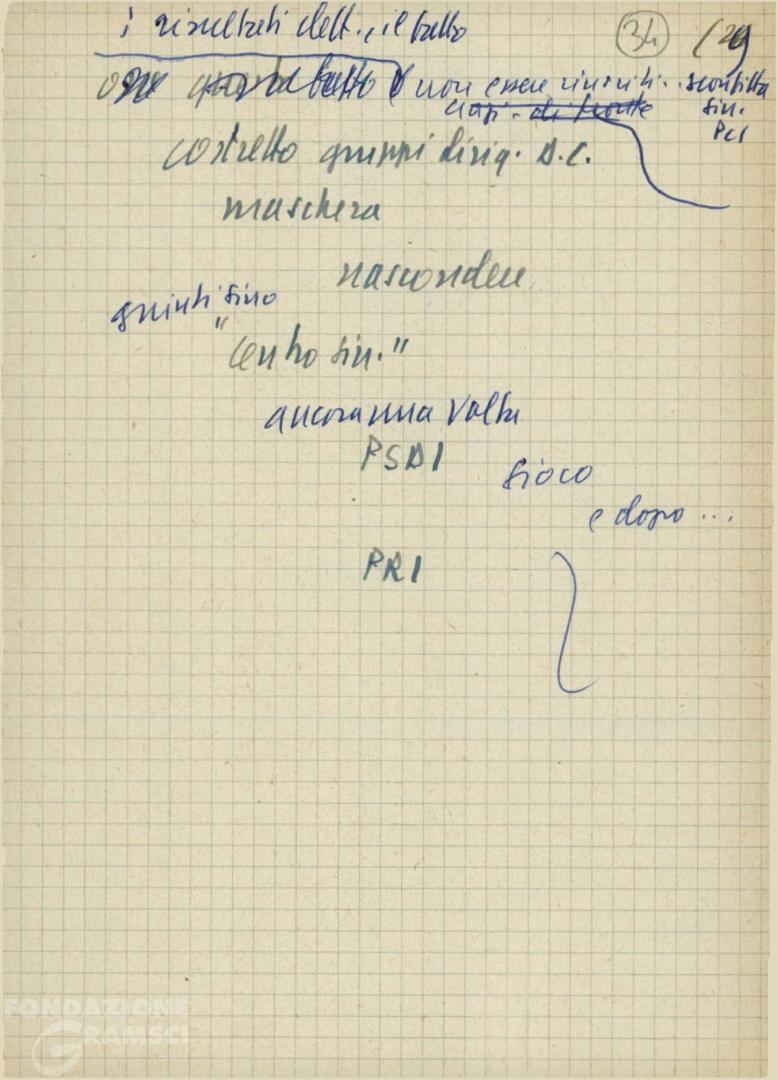 i risultati elett., il fatto
34 (29
ora questo fatto è non essere riusciti.. sconfitta
sin.
PCI
costretto gruppi dirig. D.C.
maschera
nascondere
quinti sino
"centro sin."
ancora una volta
PSDI
gioco
e dopo ...
PRI
FONDAZIONE
GRAMSCI